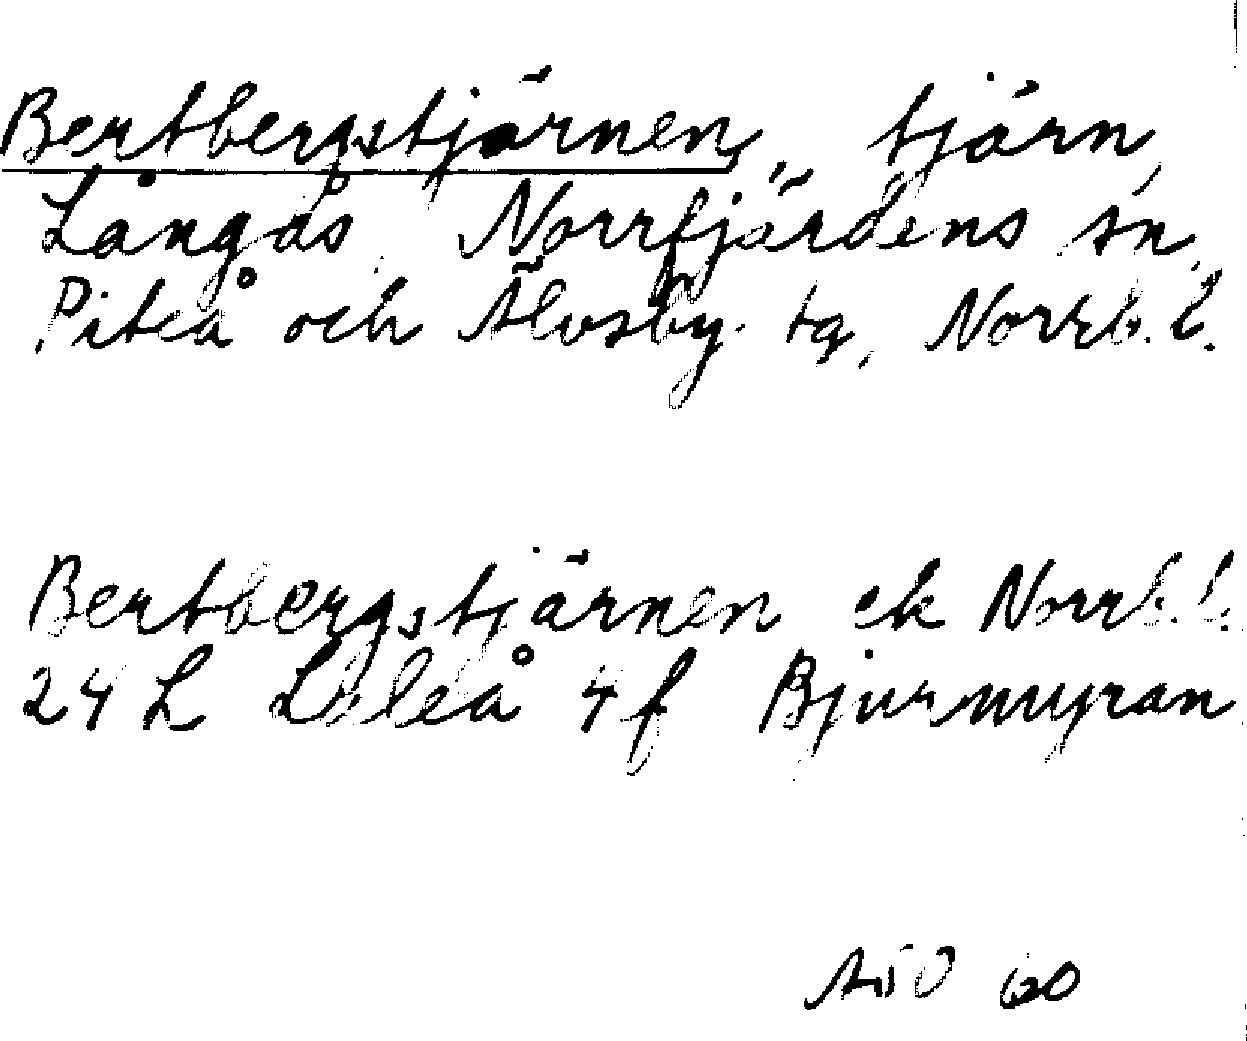 Bertbergstjärnen, tjärn,
Långås Norrfjärdens sn,
Piteå och Älvsby tg, Norrb. l.
Bertbergstjärnen ek Norrb. l.
24 L Luleå 4f Bjurmyran
60